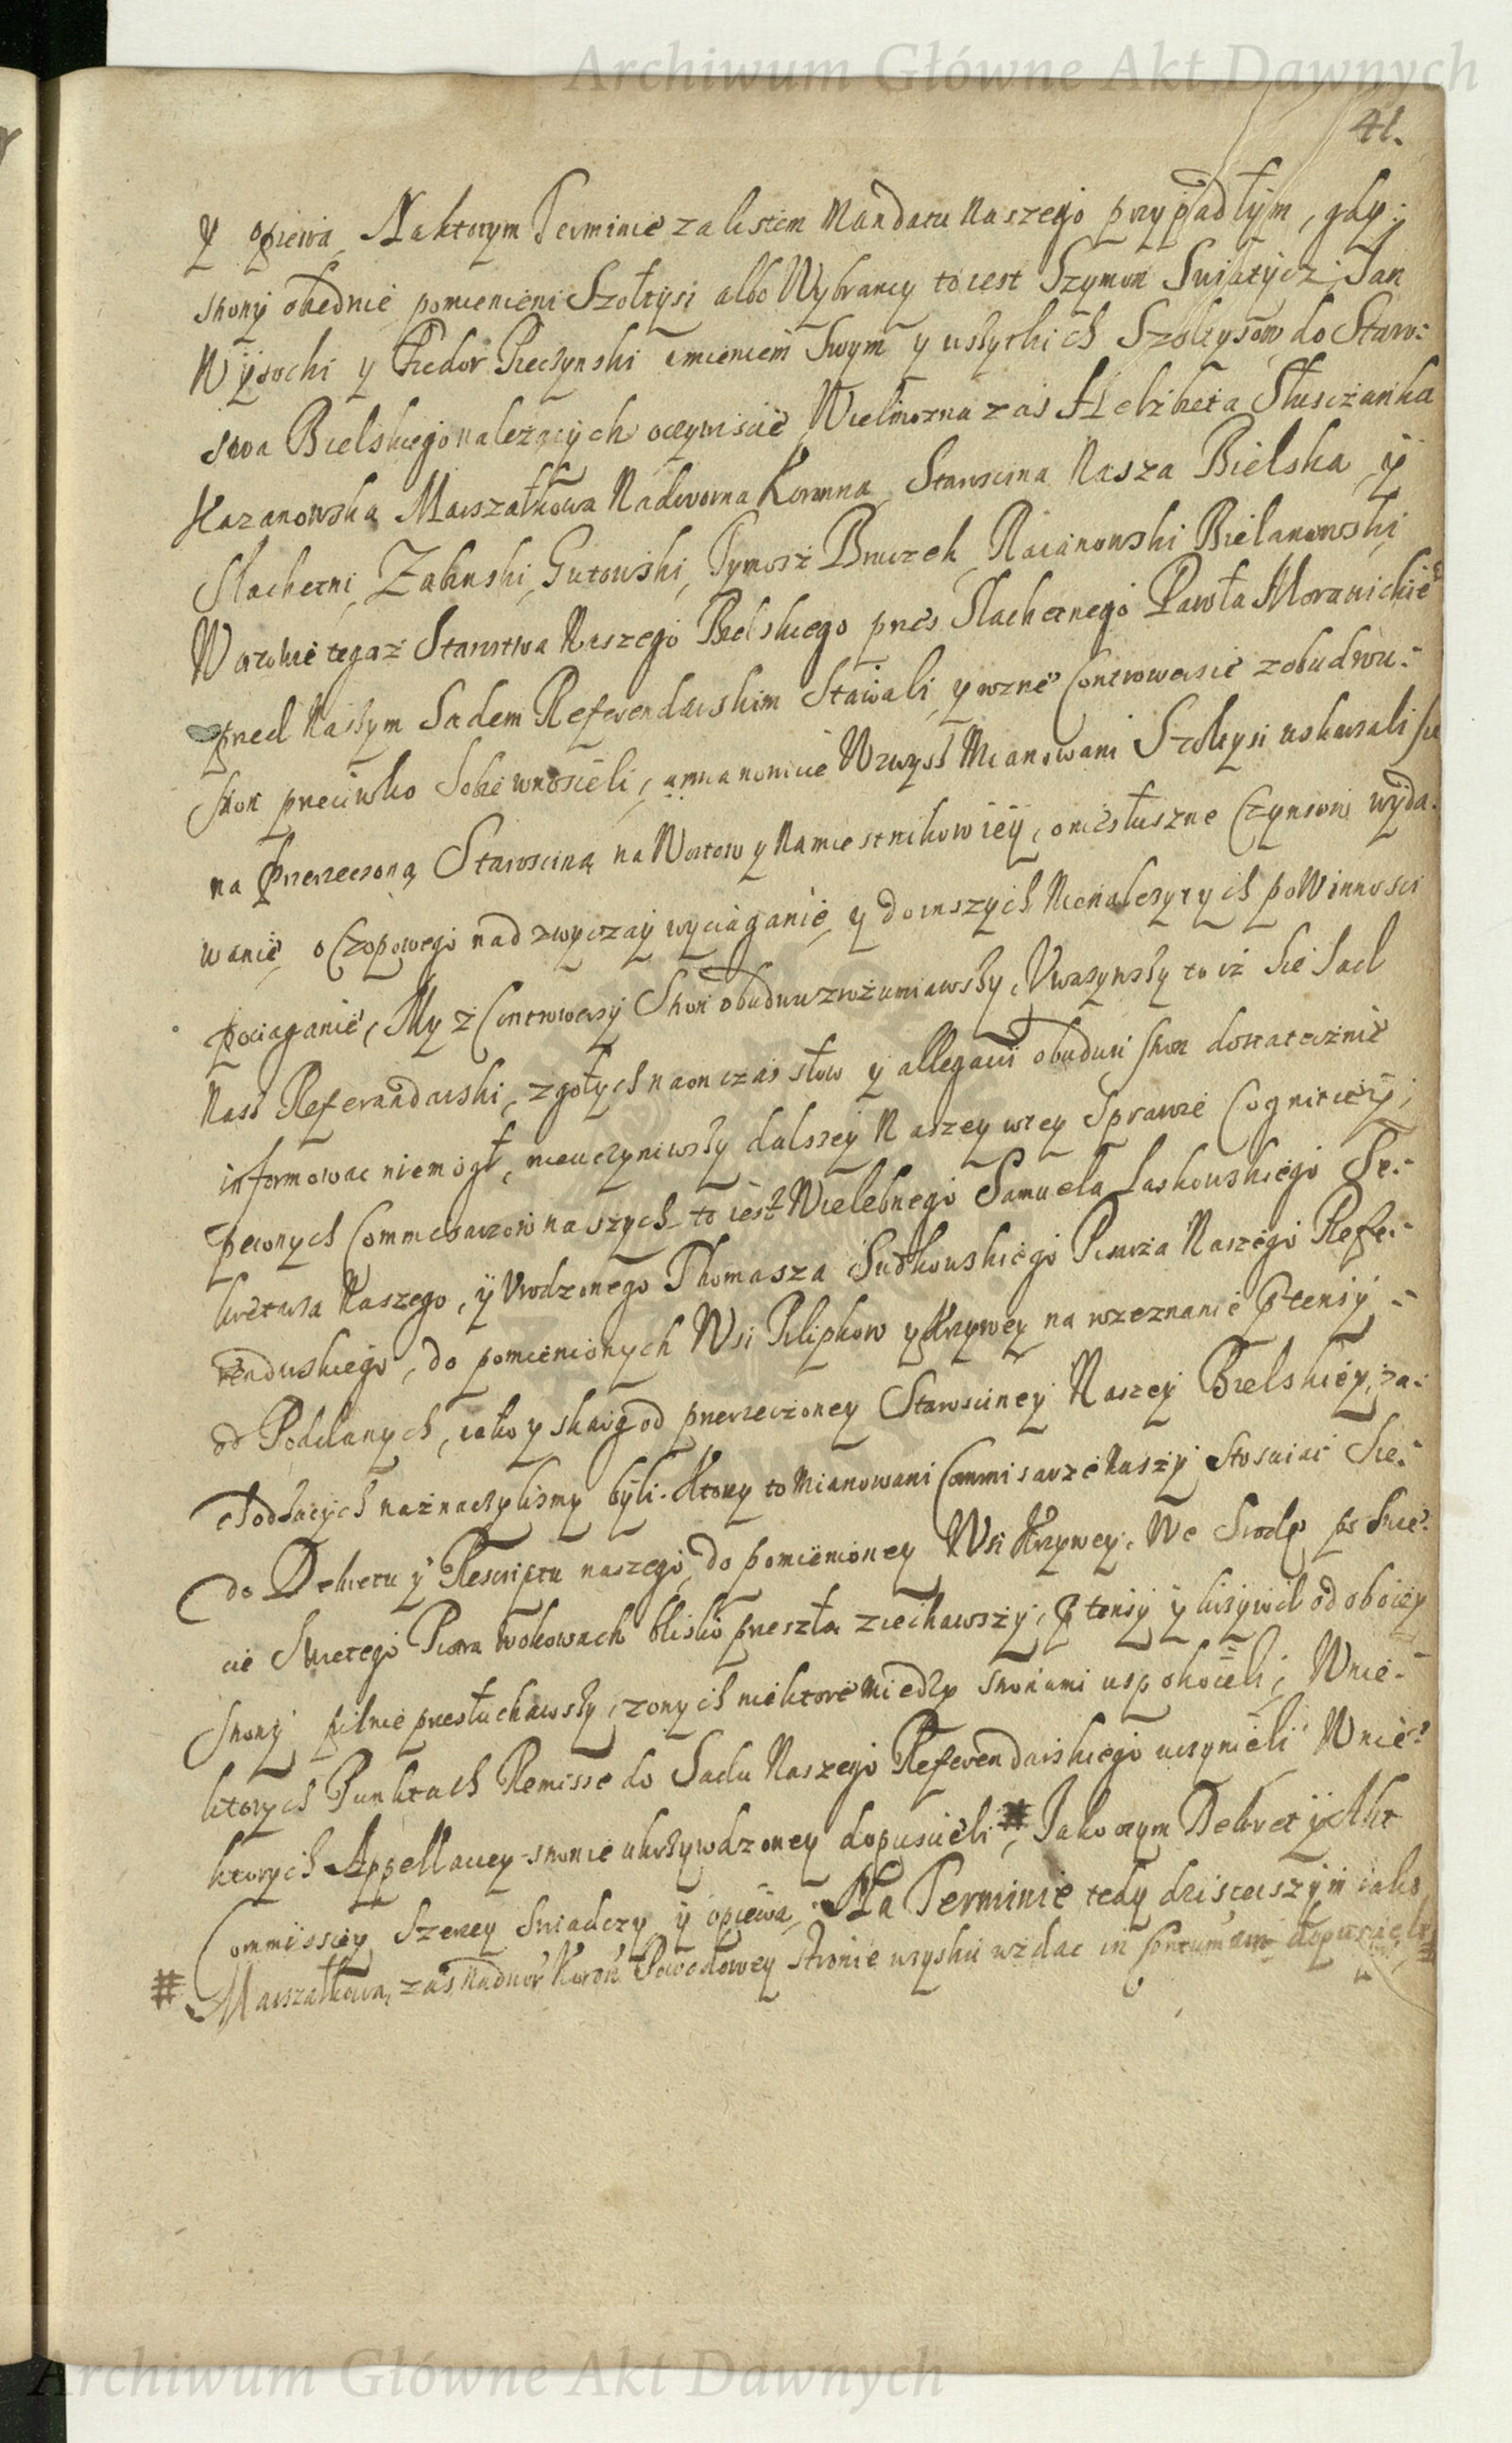 Archiwum Główne Akt Dawnych
41.
y opiewa, Naktorym Terminie za listem Mandatu Naszego przypadłym, gdy
strony obednie pomienieni Szołtysi albo Wybrancy to iest Szymon Swiatycz, Jan
Wysocki y Fiedor Pieczynski imieniem swym y wszytkich Szołtysow do Staro:
stwa Bielskiego należących oczywiscie, Wielmozna zas Helzbieta Słuszczanka
Kazanowska Marszałkowa Nadworna Koronna, Starościna Nasza Bielska y
Slachetni, Zalinski, Gutowski, Tymosz Bruczek, Racanowski Bielanowski
Woytowie tegoz Starostwa Naszego Bielskiego przes Slachetnego Pawła Morawickie
przed Naszym Sadem Referendarskim Stawali, y rozne Controwersie z obudwu:
stron przeciwko sobie wnosieli, a mianowicie Wzwysz Mianowani Szołtysi uskarzali sie
na przerzeconą Starosciną na Woitow y Namiestnikow iey, o niesłuszne Czynszow wyda:
wanie, o Czopowego nad zwyczay wyciaganie, y do inszych Nienalezytych poWinnosci
pociaganie, My z Controwersy Stron obudwu zrozumiawszy, Uwazywszy to iz sie Sad
Nasz Referandarski, z gołych na on czas słow y allegacii obudwu stron dostatecznie
informowac niemogł, nieuczyniwszy dalszey Naszey w tey Sprawie Cognitiey,
pewnych Commissarzow naszych to iest Wielebnego Samuela Laskowskiego Se:
kretarza Naszego, y Urodzonego Thomasza Sudkowskiego Pisarza Naszego Refe:
rendarskiego, do pomienionych Wsi Pilipkow y Krzywey na rozeznanie ptensiy
od Poddanych, iako y skarg od przerzeczoney Starosciney Naszey Bielskiey, za:
chodzących naznaczylismy byli. Ktorzy to Mianowani Commisarze Naszy Stosuiac Sie
do Dekretu y Rescriptu naszego, do pomienioney Wsi Krzywey, We Srodę po Swie:
cie Swietego Piotra w okowach blisko przeszła ziechawszy, ptensiy y krzywd od oboiey
strony pilnie przesłuchawszy, z onych niektore miedzy stronami uspokoieli, W nie:
ktorych Punktach Remisse do Sadu Naszego Referendarskiego uczynieli W nie:
ktorych Appellaciey stronie ukrzywdzoney dopuscieli #, Jako o tym Dekret y Akt
Commissiey Szerzey Swiadczy y opiewa. Na Terminie tedy dzisieyszym iako
# Marszałkowa, zas Nadwor Koron Powodowey stronie w zysku wzdac in Contumam dopuscieła #
Archiwum Główne Akt Dawnych